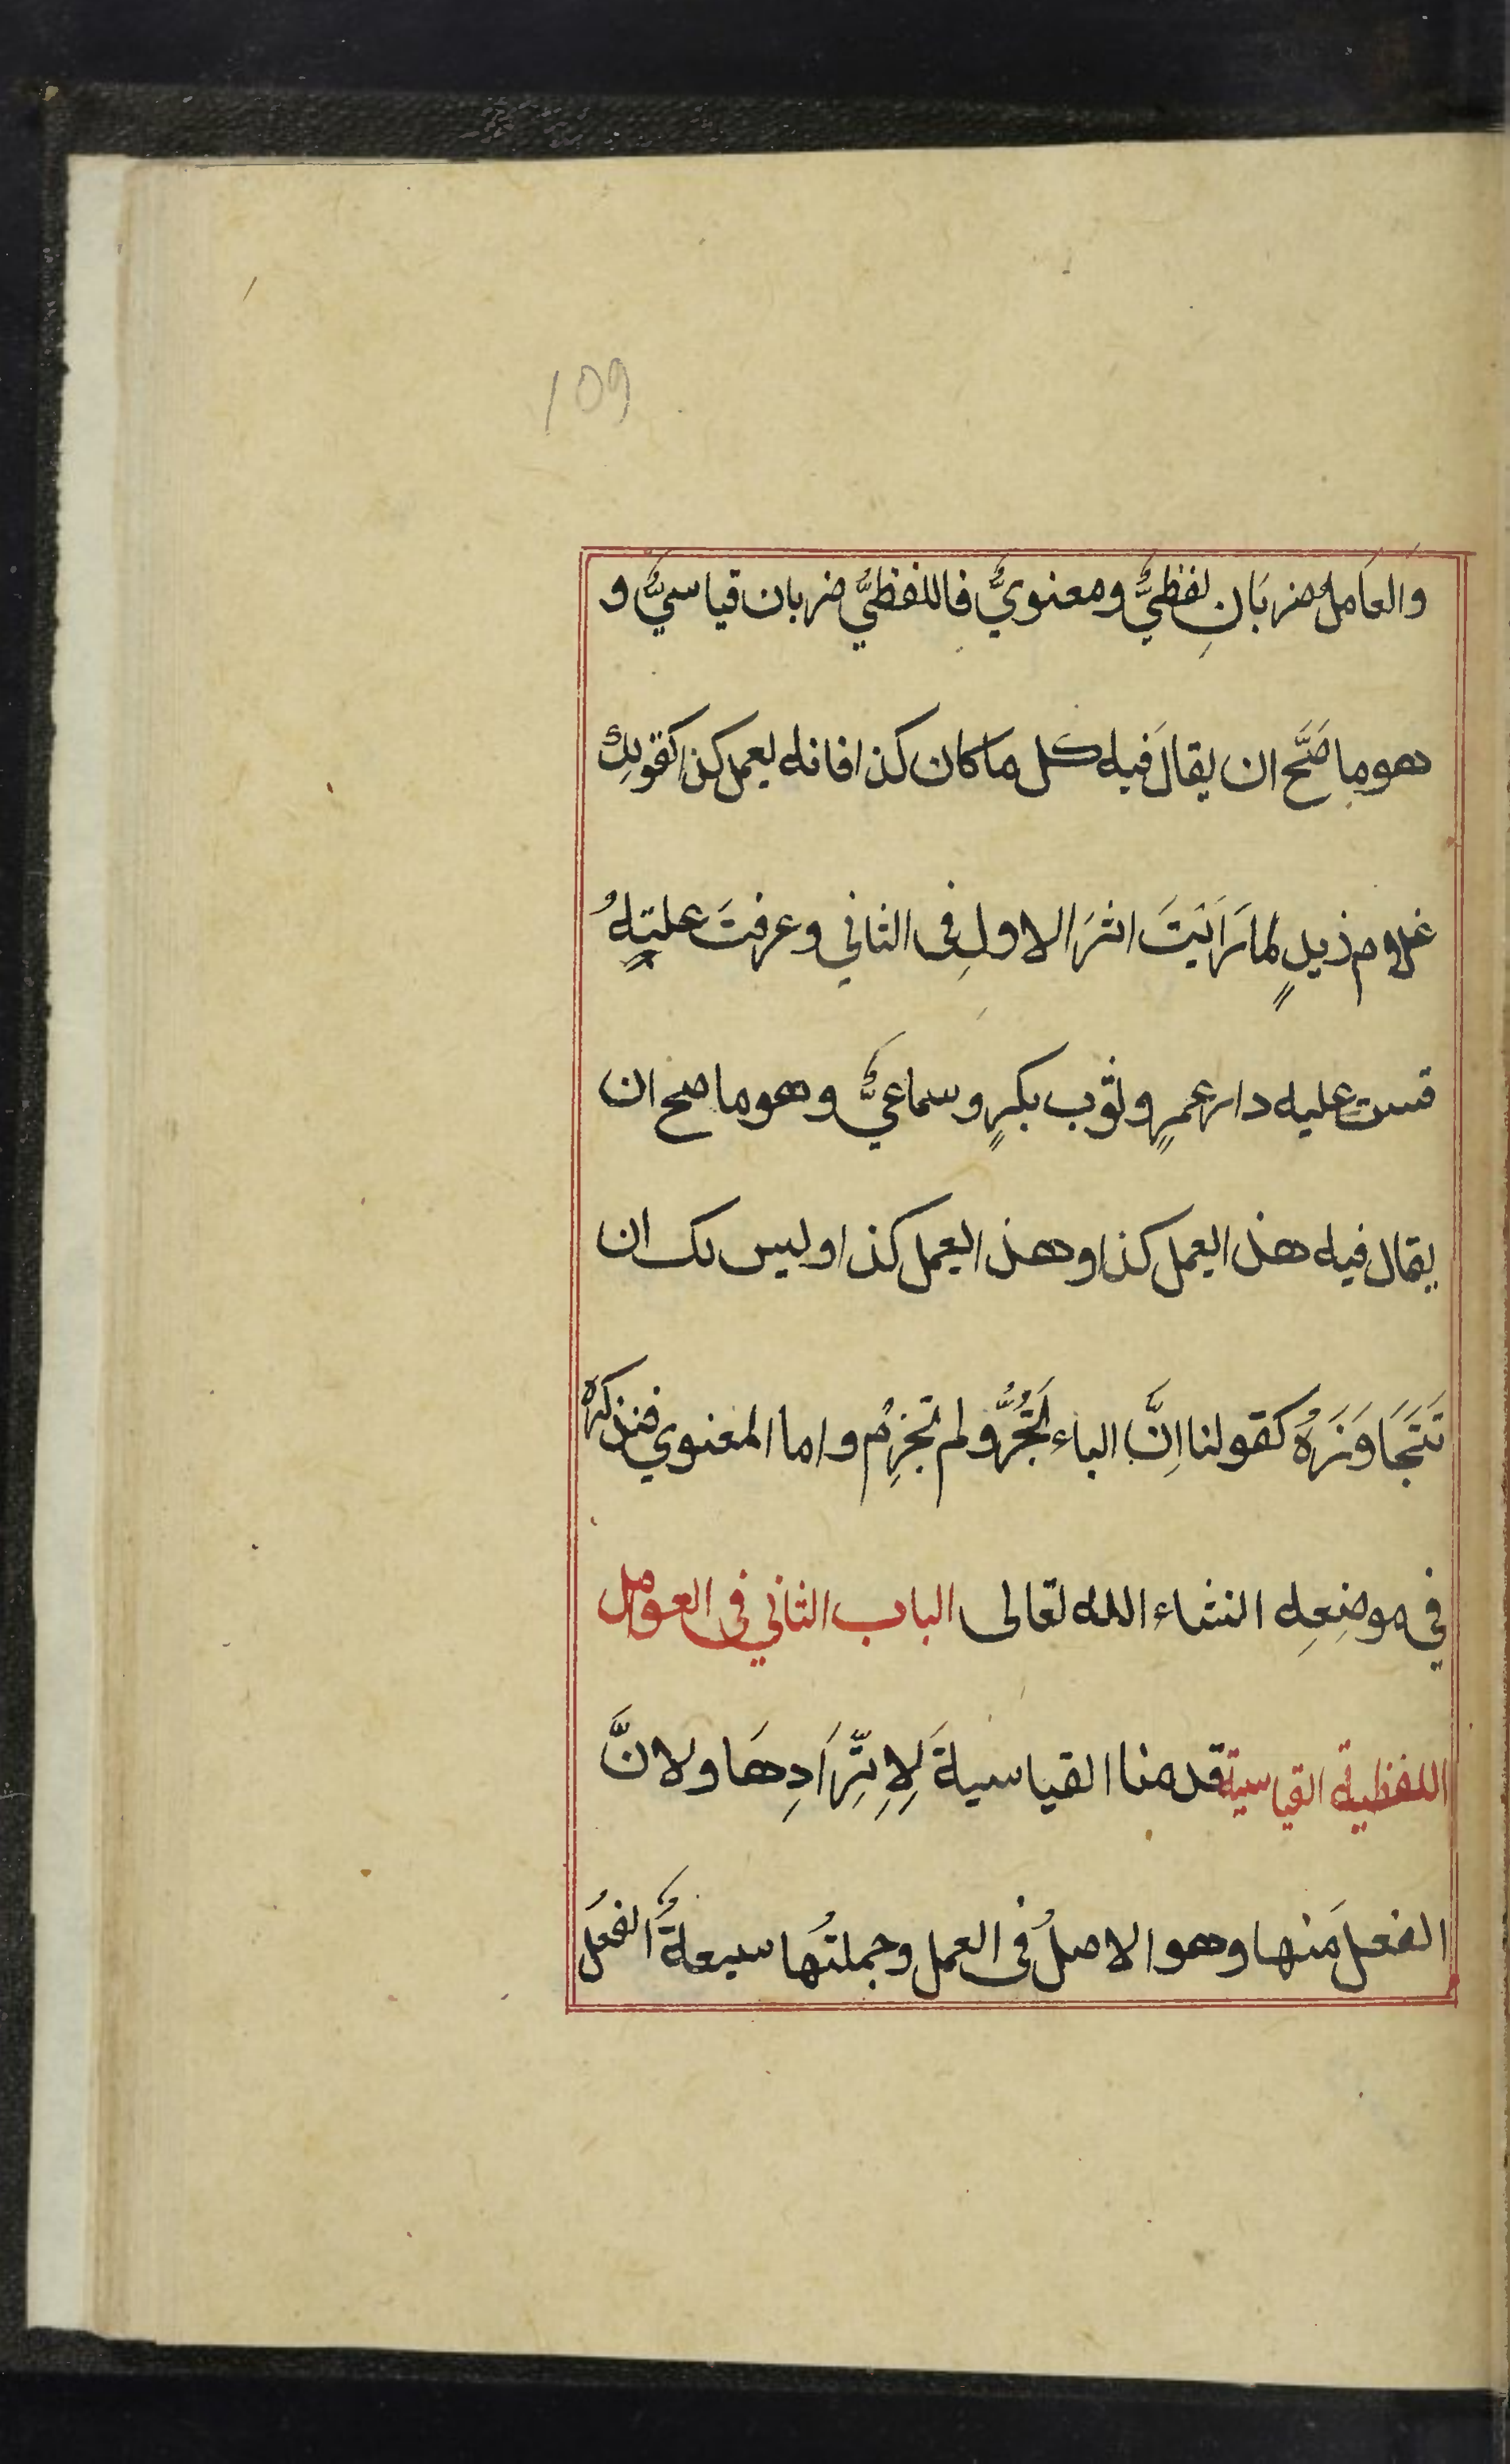 109
والعَاملُ ضربَانِ لفظيٌّ ومعنويٌّ فاللفظيُّ ضربان قياسيٌّ و
هو ما صَحَّ ان يقالَ فيه كل ما كان كذا فانه يعمل كذا كقولِكَ
غلام زيدٍ لما رَاَيتَ اثرَ الاولِ فى الثاني وعرفتَ عليتهُ
قست عليه دار عمرٍ وثوب بكرٍ وسماعيٌّ وهو ما صح ان
يقال فيه هذا يعمل كذا وهذا يعمل كذا وليس لك ان
تَتَجَاوَزَهُ كقولنا اِنَّ الباء تَجُرُّ ولم تجزِم واما المعنوي فنذكره
في موضِعِه انشاء الله تعالى الباب الثاني فى العوامل
اللفظية القياسية قدمنا القياسيةَ لِاِتِّرَادِهَا ولانَّ
الفعلَ منها وهو الاصلُ فى العمل وجملتُها سبعةٌ الفعلُ